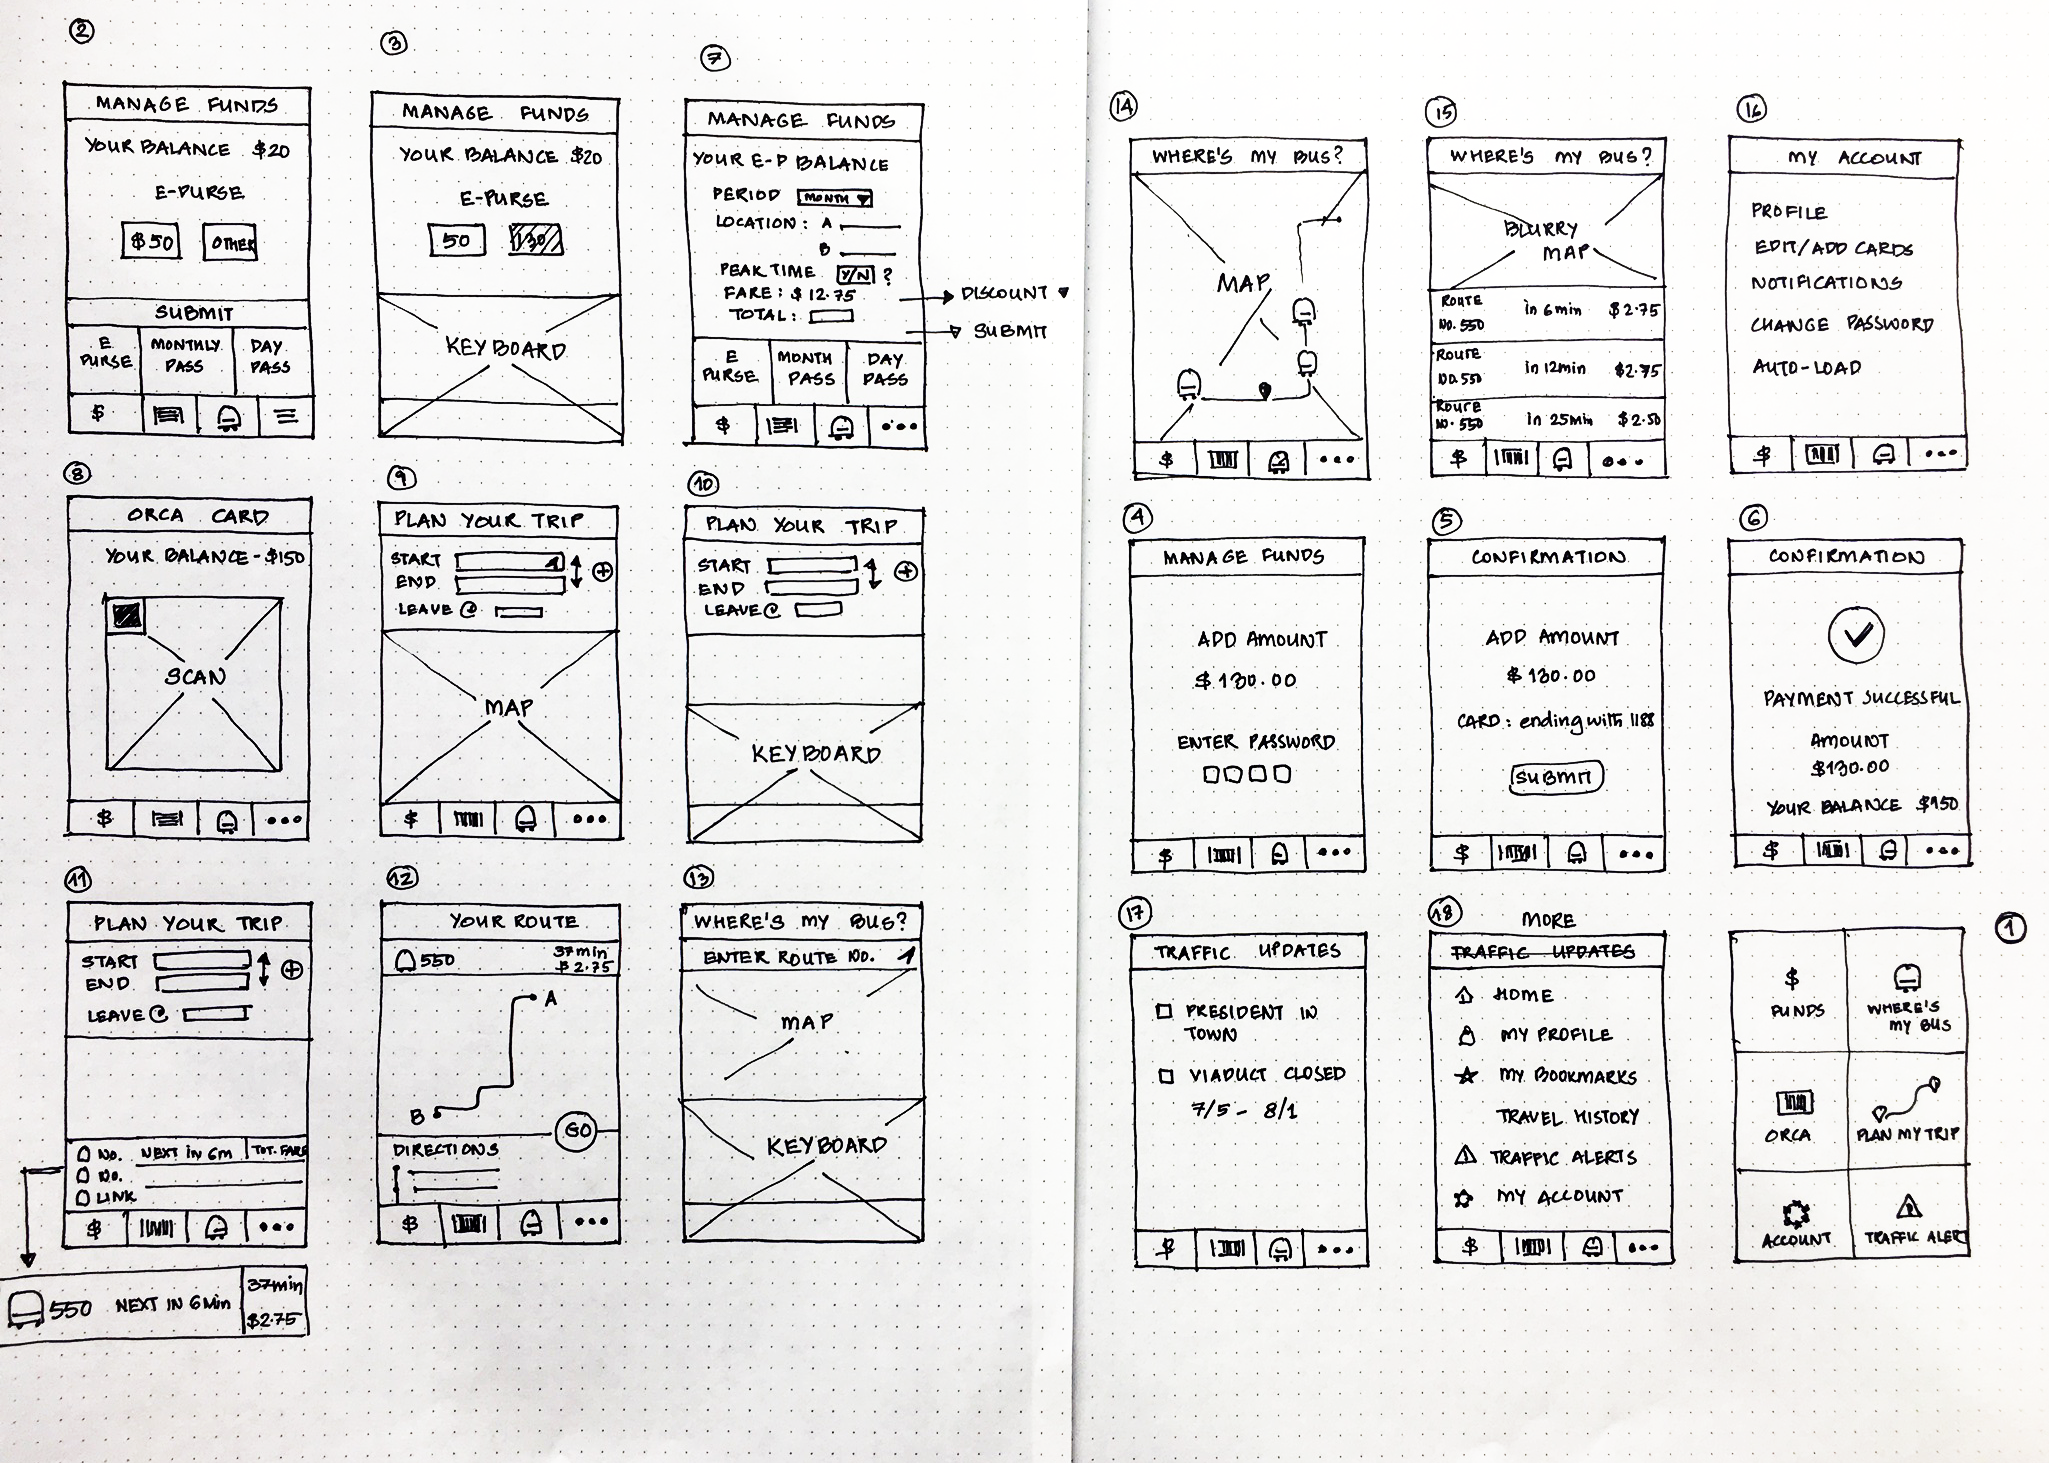 2
MANAGE FUNDS
YOUR BALANCE $20
E-PURSE
$50 OTHER
SUBMIT
E PURSE
MONTHLY PASS
DAY PASS
$
3
MANAGE FUNDS
YOUR BALANCE $20
E-PURSE
50 130
KEYBOARD
7
MANAGE FUNDS
YOUR E-P BALANCE
PERIOD MONTH
LOCATION: A
B
PEAK TIME Y/N ?
FARE: $12.75
TOTAL:
DISCOUNT
SUBMIT
E PURSE
MONTH PASS
DAY PASS
$
8
ORCA CARD
YOUR BALANCE - $150
SCAN
$
9
PLAN YOUR TRIP
START
END
LEAVE @
MAP
$
10
PLAN YOUR TRIP
START
END
LEAVE @
KEYBOARD
11
PLAN YOUR TRIP
START
END
LEAVE @
NO. NEXT IN 6m TOT. FARE
NO.
LINK
$
550 NEXT IN 6Min
37min
$2.75
12
YOUR ROUTE
550
37min
$2.75
A
B
GO
DIRECTIONS
$
13
WHERE'S MY BUS?
ENTER ROUTE NO.
MAP
KEYBOARD
14
WHERE'S MY BUS?
MAP
$
15
WHERE'S MY BUS?
BLURRY
MAP
ROUTE
NO. 550
in 6min $2.75
ROUTE
NO. 550
in 12min $2.75
ROUTE
NO. 550
in 25min $2.50
$
16
MY ACCOUNT
PROFILE
EDIT/ADD CARDS
NOTIFICATIONS
CHANGE PASSWORD
AUTO-LOAD
$
4
MANAGE FUNDS
ADD AMOUNT
$130.00
ENTER PASSWORD
$
5
CONFIRMATION
ADD AMOUNT
$130.00
CARD: ending with 1188
SUBMIT
$
6
CONFIRMATION
PAYMENT SUCCESSFUL
AMOUNT
$130.00
YOUR BALANCE $150
$
17
TRAFFIC UPDATES
PRESIDENT IN
TOWN
VIADUCT CLOSED
7/5 - 8/1
$
18
MORE
TRAFFIC UPDATES
HOME
MY PROFILE
MY BOOKMARKS
TRAVEL HISTORY
TRAFFIC ALERTS
MY ACCOUNT
$
1
$
FUNDS
WHERE'S
MY BUS
ORCA
PLAN MY TRIP
ACCOUNT
TRAFFIC ALER